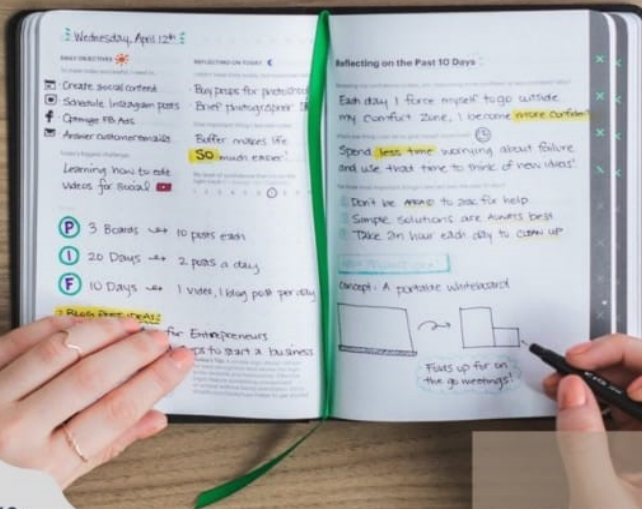 Wednesday, April 12th
DAILY OBJECTIVES
Create social content
Schedule Instagram posts
Optimize FB Ads
Answer customer emails
Today's biggest challenge:
Learning how to edit
videos for social
REFLECTING ON TODAY
Buy props for photoshoot
Brief photographer
Buffer makes life
SO much easier!
P 3 Boards 10 posts each
I 20 Days 2 posts a day
F 10 Days 1 video, 1 blog post per day
BLOG POST IDEAS:
for Entrepreneurs
to start a business
Reflecting on the Past 10 Days
Each day I force myself to go outside
my comfort zone, I become more confident
Spend less time worrying about failure
and use that time to think of new ideas!
Don't be AFRAID to ask for help
Simple solutions are ALWAYS best
Take an hour each day to CLEAN UP
Concept: A portable whiteboard
Folds up for on
the go meetings!